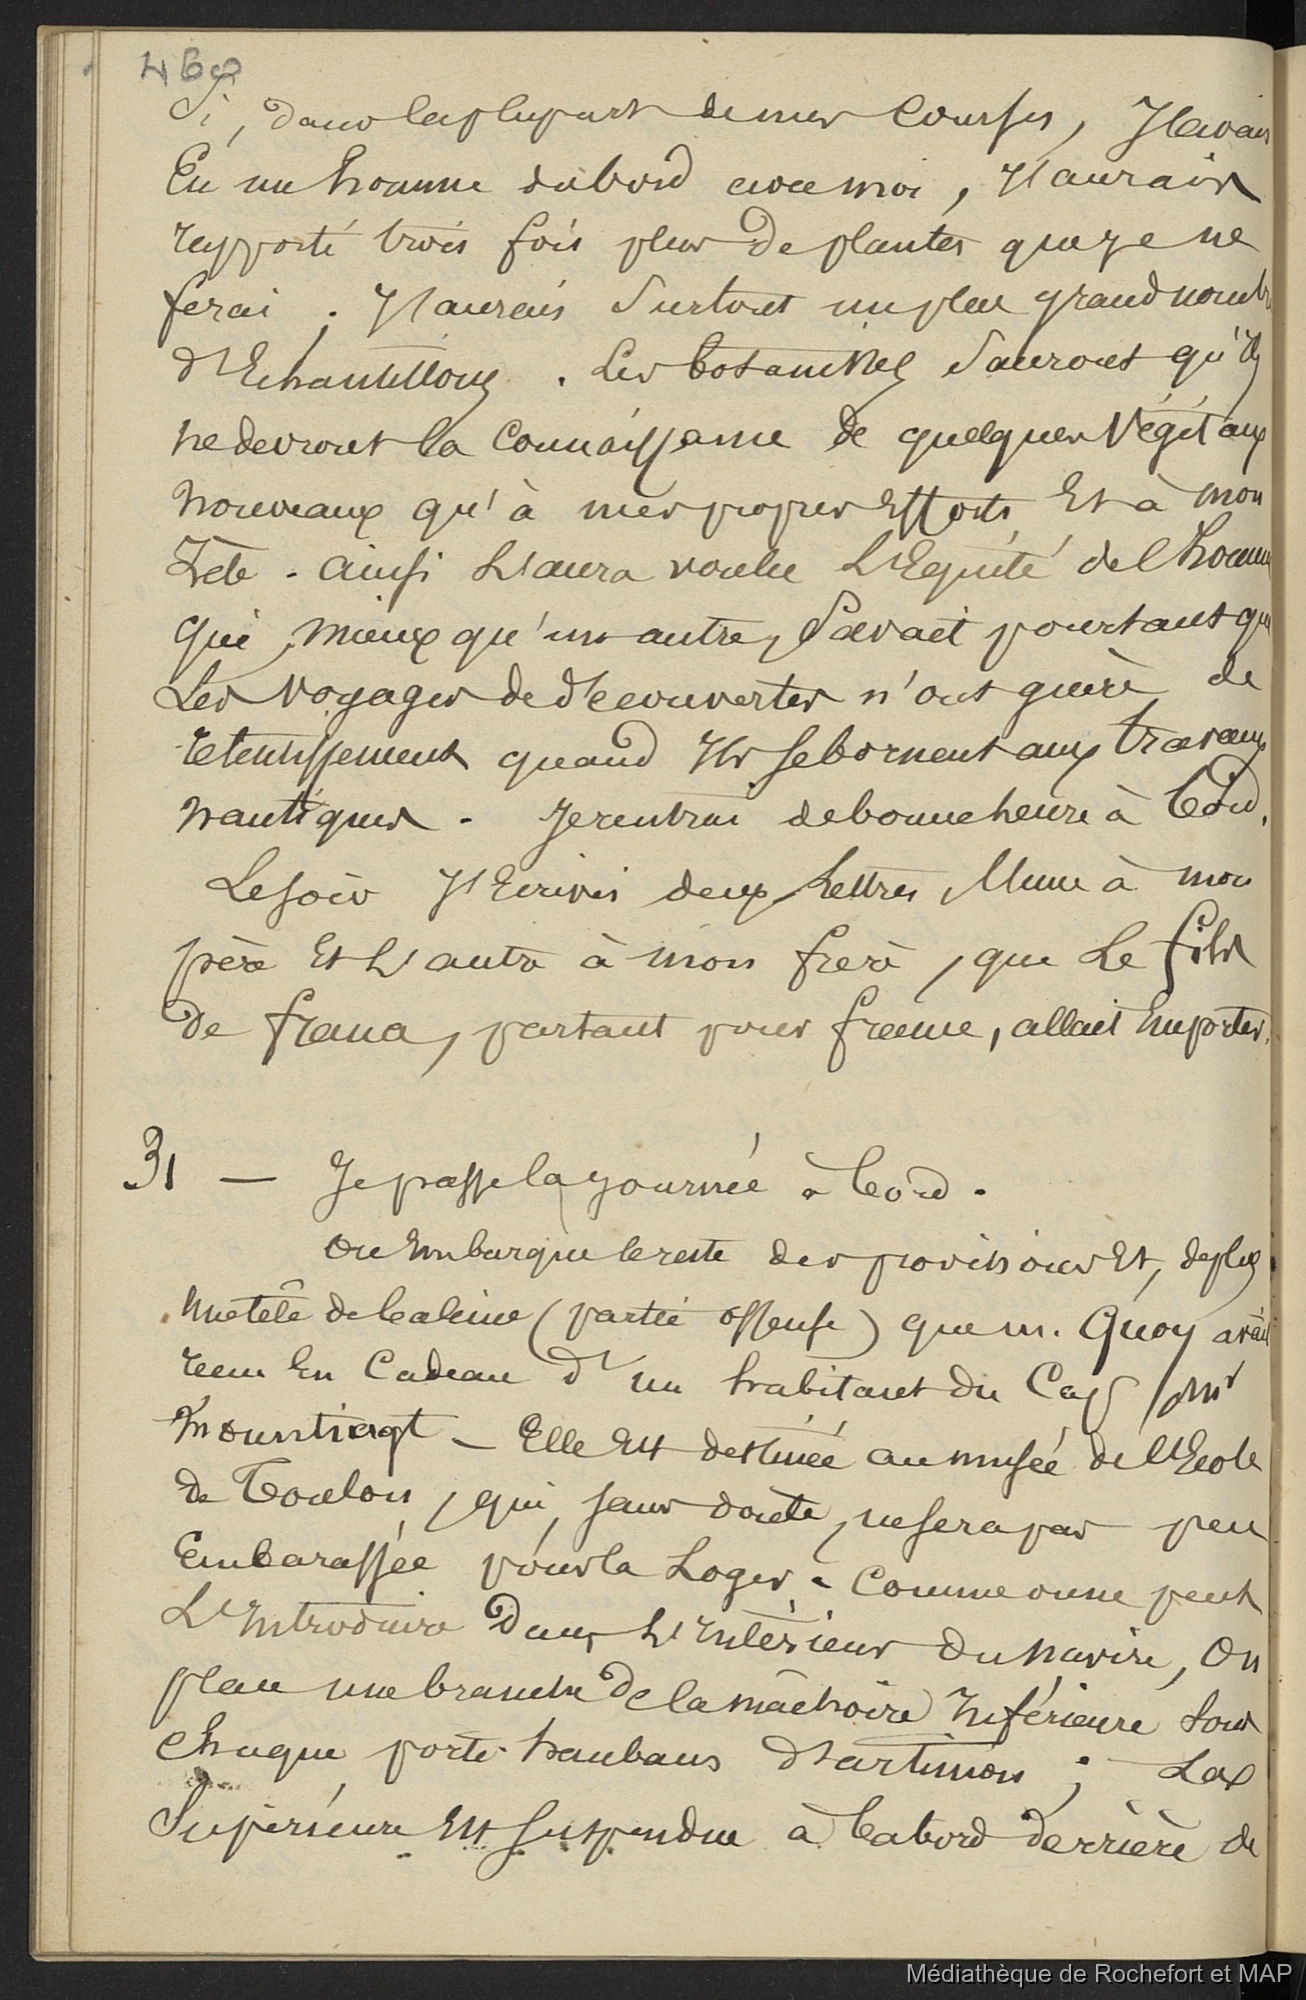 468
Si, dans la plupart de mes Courses, J'avais
Eu un homme du bord avec moi, J'aurais
rapporté trois fois plus de plantes que je ne
ferai ; J'aurais Surtout un plus grand nombre
d'Echantillons. Les botanistes Sauront qu'ils
ne devront la Connaissance de quelques Végétaux
nouveaux qu'à mes propres Efforts Et à mon
Zèle. Ainsi L'aura voulu L'Equité de l'homme
qui, mieux qu'un autre, Savait pourtant que
Les voyages de découvertes n'ont guère de
retentissement quand Ils se bornent aux travaux
nautiques. Je rentrai de bonne heure à bord.
Le soir J'Ecrivis deux Lettres, l'une à mon
père Et L'autre à mon frère, que Le fils
de , partant pour france, allait Emporter.
31 — Je passe la journée à bord.
On Embarque le reste des provisions Et, de plus
une tête de baleine (partie osseuse) que m. Quoy avait
recue En Cadeau d'un habitant du Cap, Mr
. — Elle Est destinée au musée de l'Ecole
de Toulon, qui, sans doute, ne sera pas peu
Embarassée pour la Loger. Comme on ne peut
L'Introduire Dans L'Intérieur du navire, On
place une branche de la mâchoire Inférieure Sous
chaque porte-haubans d'artimon ; La
Supérieure Est suspendue à babord derrière de
Médiathèque de Rochefort et MAP